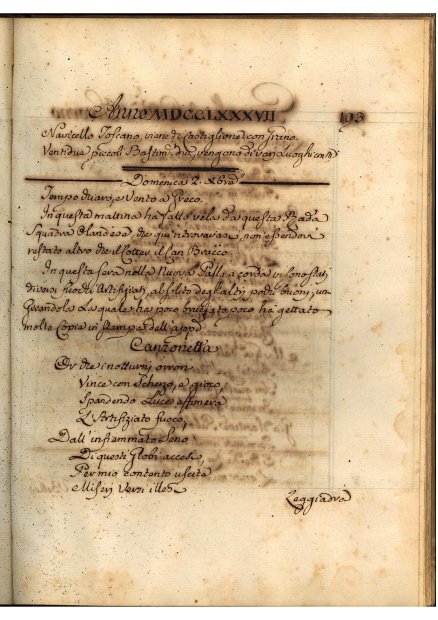 Anno MDCCLXXXVII 193
Navicello Toscano, viene di Castiglione con Grano.
Ventidue piccoli Bastim.ti che vengono di varj Luoghi con
Domenica 2. Xbre
Tempo duaro, e Vento a Greco.
In questa mattina ha fatto vela da questa Rada
Squadra Olandese, che qui ritrovavasi, non essendovi
restato altro che il Cotter, il San
In questa sera nella Nuova
diversi fuochi Artifiziati, al solito degl'altri pochi buoni, un
Girandola La quale ha poco bruciato, poco ha gettato
molte Copie in stampa dell'app.
Canzonetta
Or che i notturni orrori
Vince con Scherzo, e gioco,
Spandendo Luce effimera
L'Artifiziato fuoco,
Dall'infiammato Seno
Di questi Globi accesi
Per mio contento uscite
Miseri Versi illesi.
Leggiadra